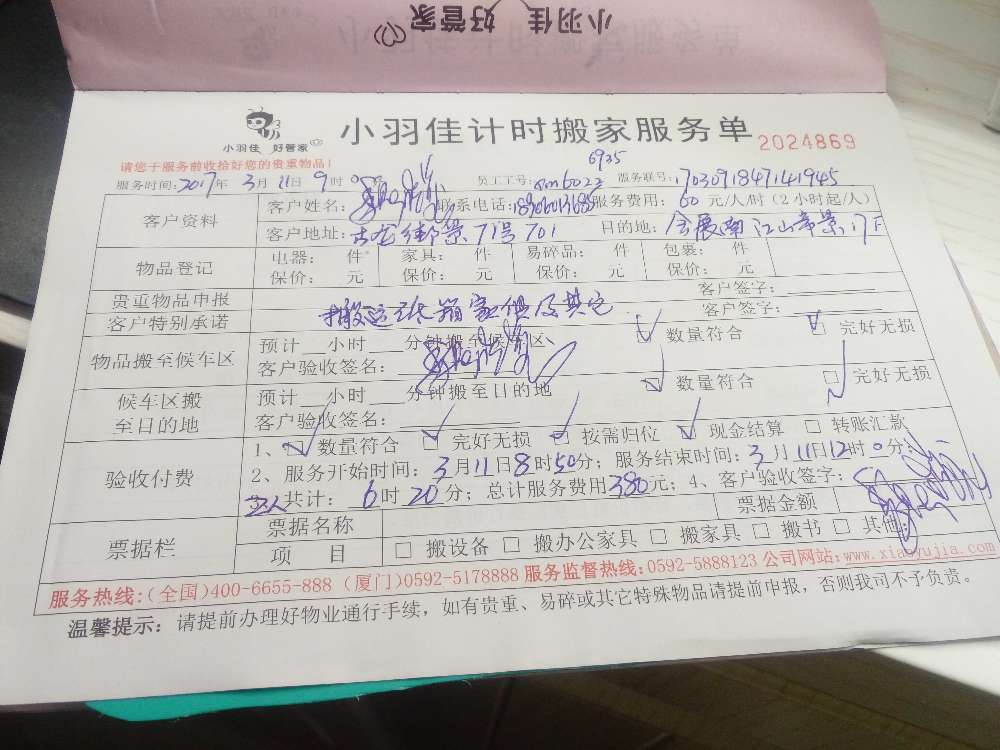 小羽佳 好管家
小羽佳 好管家
小羽佳计时搬家服务单
2024869
请您于服务前收拾好您的贵重物品!
6935
服务时间:2017年3月11日9时 员工工号:xm6022 服务联号:1703091847141945
客户资料
客户姓名: 联系电话: 服务费用:60元/人/时(2小时起/人)
客户地址:古龙御景71号701 目的地:会展南江山帝景
物品登记
电器: 件 家具: 件 易碎品: 件 包裹: 件
保价: 元 保价: 元 保价: 元 保价: 元
贵重物品申报 客户签字:
客户特别承诺 搬运 及其它 客户签字:
物品搬至候车区
预计 小时 分钟搬至候车区 数量符合 完好无损
客户验收签名:
候车区搬至目的地
预计 小时 分钟搬至目的地 数量符合 完好无损
客户验收签名:
验收付费
1、 数量符合 完好无损 按需归位 现金结算 转账汇款
2、服务开始时间:3月11日8时50分;服务结束时间:3月11日12时0分;
共计:6时20分;总计服务费用380元;4、客户验收签字:
票据栏
票据名称 票据金额
项 目 搬设备 搬办公家具 搬家具 搬书 其他:
服务热线:(全国)400-6655-888 (厦门)0592-5178888 服务监督热线:0592-5888123 公司网站:www.xiaoyujia.com
温馨提示:请提前办理好物业通行手续,如有贵重、易碎或其它特殊物品请提前申报,否则我司不予负责。